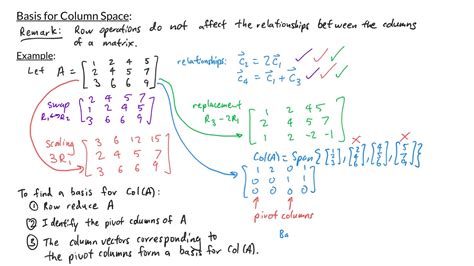 Basis for Column Space:
Remark: Row operations do not affect the relationships between the columns
of a matrix.
Example:
Let A = [1 2 4 5
2 4 5 7
3 6 6 9]
relationships: c₂ = 2c₁ ✓✓✓
c₄ = c₁ + c₃ ✓✓✓
swap
R₁↔R₂
[2 4 5 7
1 2 4 5
3 6 6 9]
replacement
R₃ - 2R₁
[1 2 4 5
2 4 5 7
1 2 -2 -1]
scaling
3R₁
[3 6 12 15
2 4 5 7
3 6 6 9]
Col(A) = Span{[1 2 3], [2 4 6], [4 5 6], [5 7 9]}
x x
[1 2 0 1
0 0 1 1
0 0 0 0]
pivot columns
Ba
To find a basis for Col(A):
① Row reduce A
② Identify the pivot columns of A
③ The column vectors corresponding to
the pivot columns form a basis for Col(A).